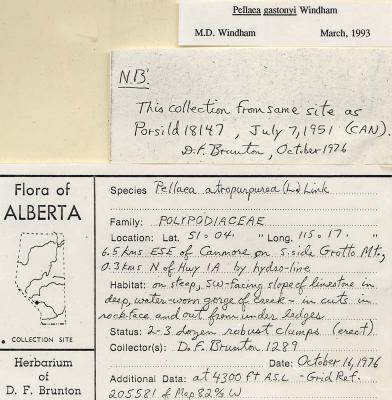 Pellaea gastonyi Windham
M.D. Windham March, 1993
N.B.
This collection from same site as
Porsild 18147, July 7, 1951 (CAN).
D.F. Brunton, October 1976
Flora of
ALBERTA
• COLLECTION SITE
Herbarium
of
D. F. Brunton
Species Pellaea atropurpurea (L.) Link
Family: POLYPODIACEAE
Location: Lat. 51° 04' " Long. 115° 17' "
6.5 kms ESE of Canmore on S.side Grotto Mt,
0.3 kms N of Hwy 1A by hydro-line
Habitat: on steep, SW-facing slope of limestone in
deep, water-worn gorge of creek - in cuts in
rockface and out from under ledges
Status: 2-3 dozen robust clumps (erect)
Collector(s): D.F. Brunton 1289
Date: October 16, 1976
Additional Data: at 4300 ft A.S.L - Grid Ref.
205581 of Map 82% W